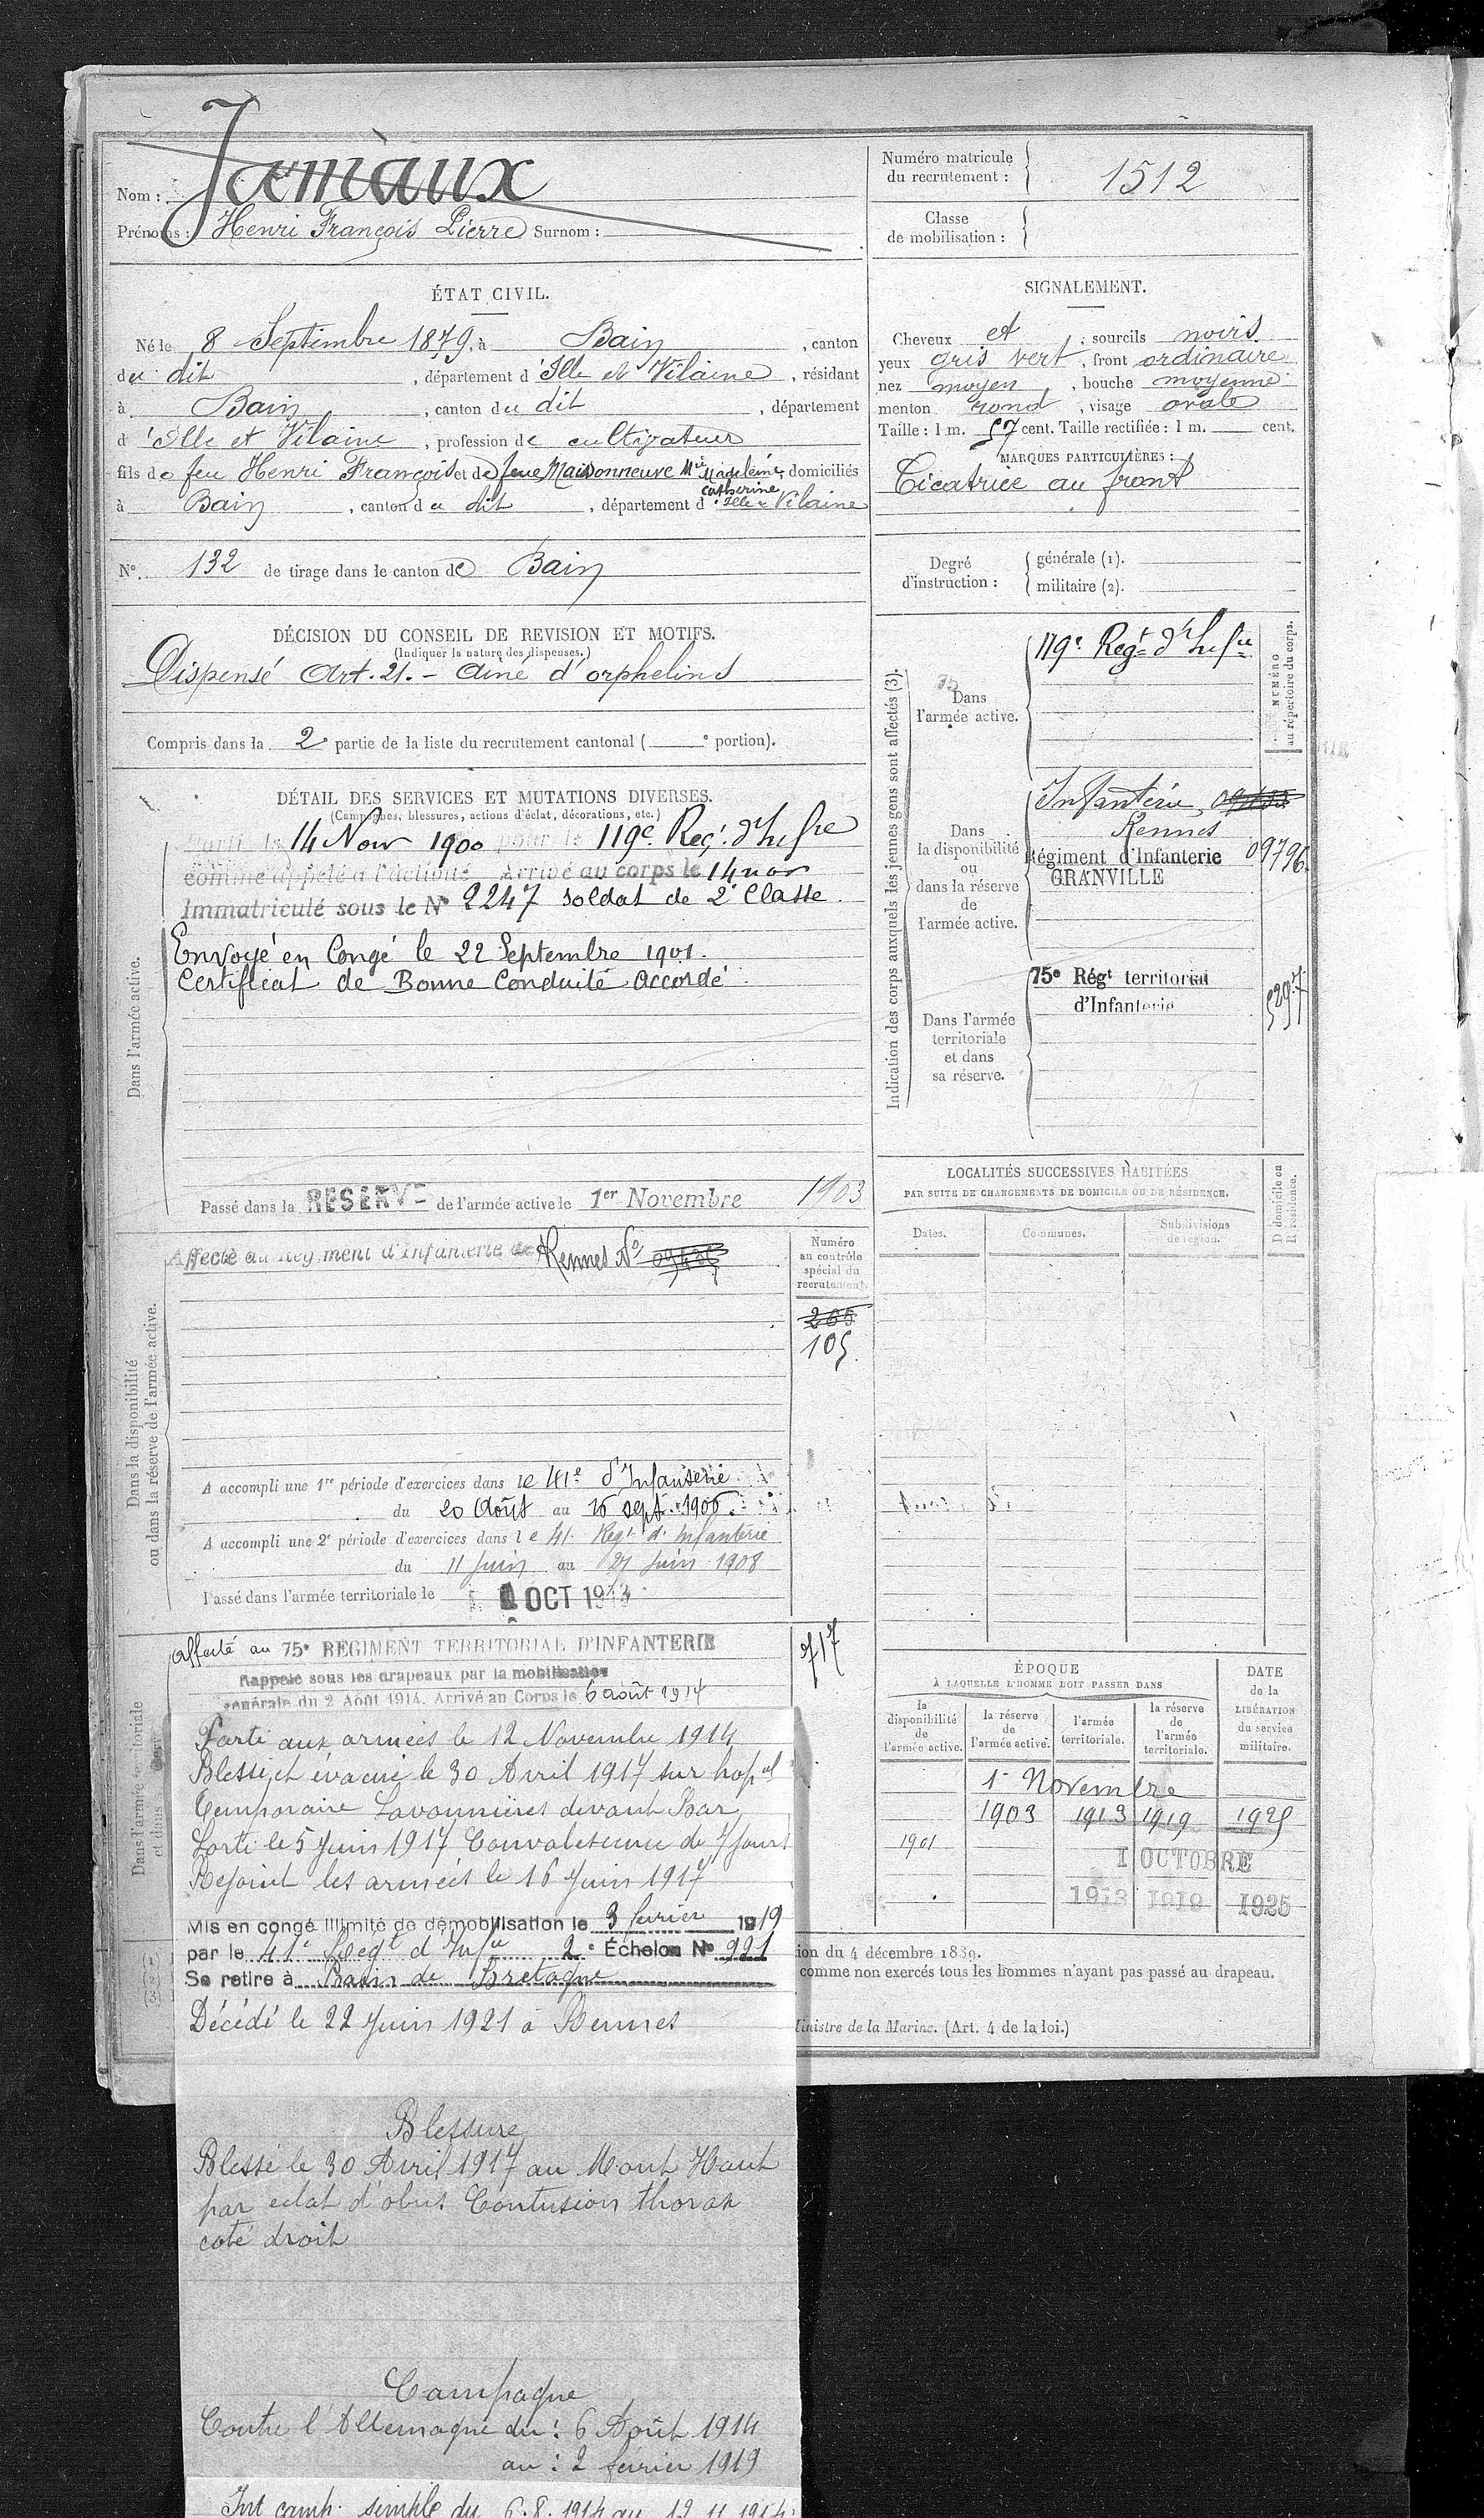 Nom : Jamaux
Prénoms : Henri François Pierre Surnom :
Numéro matricule du recrutement : 1512
Classe de mobilisation :
ÉTAT CIVIL.
Né le 8 Septembre 1879, à Bain, canton
du dit, département d'Ille et Vilaine, résidant
à Bain, canton du dit, département
d'Ille et Vilaine, profession de cultivateur
fils de feu Henri François et de feue Maisonneuve Mie Madeleine Catherine, domiciliés
à Bain, canton du dit, département d'Ille & Vilaine
N° 132 de tirage dans le canton de Bain
SIGNALEMENT.
Cheveux et ; sourcils noirs
yeux gris vert, front ordinaire
nez moyen, bouche moyenne
menton rond, visage ovale
Taille : 1 m. 57 cent. Taille rectifiée : 1 m. cent.
MARQUES PARTICULIÈRES :
Cicatrice au front
Degré d'instruction : générale (1).
militaire (2).
DÉCISION DU CONSEIL DE REVISION ET MOTIFS.
(Indiquer la nature des dispenses.)
Dispensé Art. 21. - Ainé d'orphelins
Compris dans la 2e partie de la liste du recrutement cantonal ( e portion).
DÉTAIL DES SERVICES ET MUTATIONS DIVERSES.
(Campagnes, blessures, actions d'éclat, décorations, etc.)
Dans l'armée active.
Parti le 14 Nov 1900 pour le 119e Reg. d'Infie
comme appelé à l'activité Arrivé au corps le 14 nov
Immatriculé sous le N° 2247 soldat de 2e Classe.
Envoyé en Congé le 22 Septembre 1901.
Certificat de Bonne Conduite Accordé
Passé dans la RESERVE de l'armée active le 1er Novembre 1903
Dans la disponibilité
ou dans la réserve de l'armée active.
Affecté au Régiment d'Infanterie de Rennes No
Numéro
au contrôle
spécial du
recrutement.
265
105.
A accompli une 1re période d'exercices dans le 41e d'Infanterie
du 20 Août au 16 sept. 1906.
A accompli une 2e période d'exercices dans le 41. Regt d'Infanterie
du 11 Juin au 27 Juin 1908
Passé dans l'armée territoriale le 1 OCT 1913
Dans l'armée territoriale
et dans
Affecté au 75e REGIMENT TERRITORIAL D'INFANTERIE
717
Rappelé sous les drapeaux par la mobilisation
générale du 2 Août 1914. Arrivé au Corps le 6 août 1914
Parti aux armées le 12 Novembre 1914
Blessé et évacué le 30 Avril 1917 sur hopal
Temporaire Savonnières devant Bar
Sorti le 5 Juin 1917 Convalescence de 7 jours
Rejoint les armées le 16 Juin 1917
Mis en congé illimité de démobilisation le 3 février 1919
par le 41e Regt d'Infie 2e Échelon N° 921
Se retire à Bain de Bretagne
Décédé le 22 Juin 1921 à Rennes
Blessure
Blessé le 30 Avril 1917 au Mont Haut
par eclat d'obus Contusion thorax
coté droit
Campagne
Contre l'Allemagne du : 6 Août 1914
au : 2 février 1919
Int camp. simple du 6.8.1914 au 12 11 1914
Indication des corps auxquels les jeunes gens sont affectés (3).
Dans
l'armée active.
119e Regt d'Infie
NUMÉRO
au répertoire du corps.
Dans
la disponibilité
ou
dans la réserve
de
l'armée active.
Infanterie
Rennes
Régiment d'Infanterie 09796.
GRANVILLE
Dans l'armée
territoriale
et dans
sa réserve.
75e Régt territorial
d'Infanterie
5297
LOCALITÉS SUCCESSIVES HABITÉES
PAR SUITE DE CHANGEMENTS DE DOMICILE OU DE RÉSIDENCE.
Dates. Communes. Subdivisions de région.
D domicile ou
R résidence.
ÉPOQUE
À LAQUELLE L'HOMME DOIT PASSER DANS
DATE
de la
LIBÉRATION
du service
militaire.
la disponibilité de l'armée active.
la réserve de l'armée active.
l'armée territoriale.
la réserve de l'armée territoriale.
1er Novembre
1903 1913 1919 1925
1901
1 OCTOBRE
1913 1919 1925
ion du 4 décembre 1889.
comme non exercés tous les hommes n'ayant pas passé au drapeau.
Ministre de la Marine. (Art. 4 de la loi.)